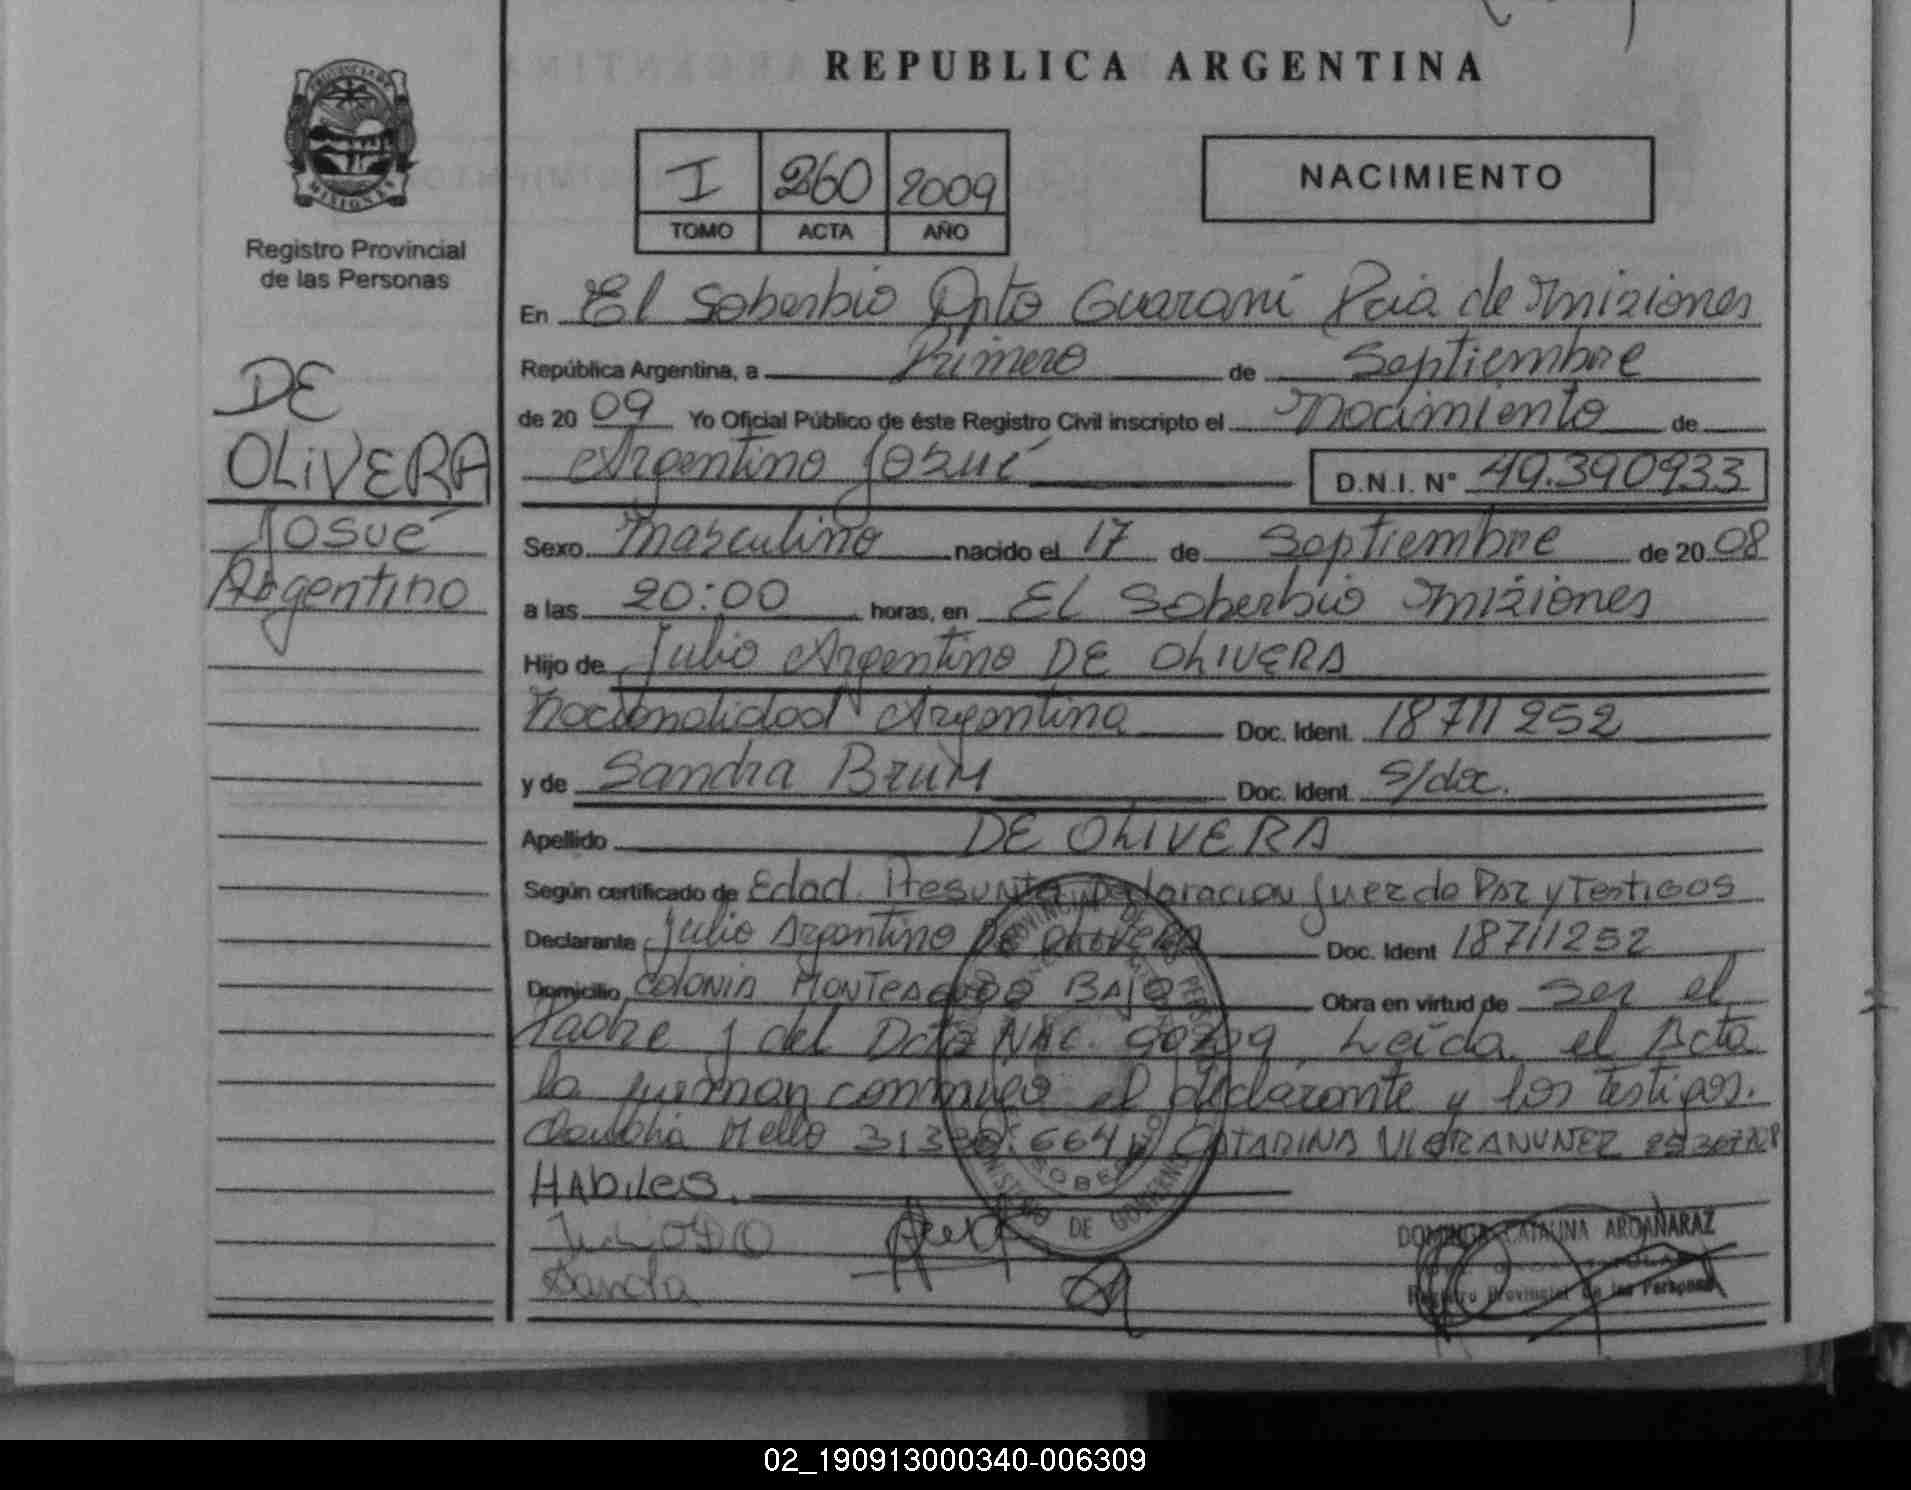 REPUBLICA ARGENTINA
PROVINCIA DE
MISIONES
Registro Provincial
de las Personas
I 260 2009
TOMO ACTA AÑO
NACIMIENTO
DE
OLIVERA
Josué
Argentino
En El Soberbio Dpto Guaraní Pcia de Misiones
República Argentina, a Primero de Septiembre
de 2009 Yo Oficial Público de éste Registro Civil inscripto el Nacimiento de
Argentino Josué D.N.I. N° 49.390933
Sexo Masculino nacido el 17 de Septiembre de 2008
a las 20:00 horas, en El Soberbio Misiones
Hijo de Julio Argentino DE OLIVERA
Nacionalidad Argentina Doc. Ident. 18711252
y de Sandra BRUM Doc. Ident. S/doc.
Apellido DE OLIVERA
Según certificado de Edad Presunta y Declaracion Juez de Paz y Testigos
Declarante Julio Argentino DE OLIVERA Doc. Ident 18711252
Domicilio Colonia Monteagudo Bajo Obra en virtud de ser el
Padre y del Dcto NAC. 90209 Leída el Acta
la firman conmigo el declarante y los testigos.
Claudia Mello CATARINA VIERA NUNEZ
Habiles.
Sandra
DOMINGA CATALINA ARGAÑARAZ
Registro Provincial de las Personas
02_190913000340-006309